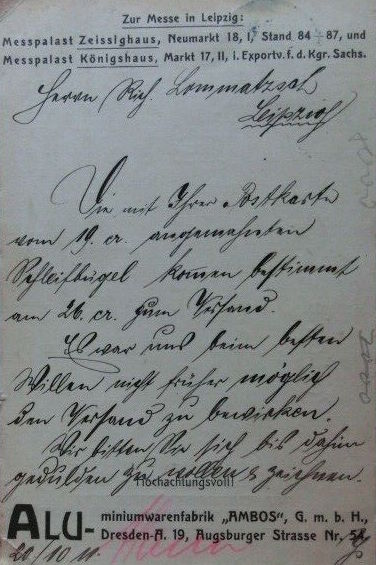 Zur Messe in Leipzig:
Messpalast Zeissighaus, Neumarkt 18, I, Stand 84 – 87, und
Messpalast Königshaus, Markt 17, II, i. Exportv. f. d. Kgr. Sachs.
Herrn Rich. Lommatzsch
Leipzig
Die mit Ihrer Postkarte
vom 19. cr. angemahnten
Schleifbügel kommen bestimmt
am 26. cr. zum Versand.
Es war uns beim besten
Willen nicht früher möglich
den Versand zu bewirken.
Wir bitten Sie sich bis dahin
gedulden zu wollen & zeichnen.
Hochachtungsvoll!
ALU-miniumwarenfabrik „AMBOS“, G. m. b. H.,
Dresden-A. 19, Augsburger Strasse Nr. 54.